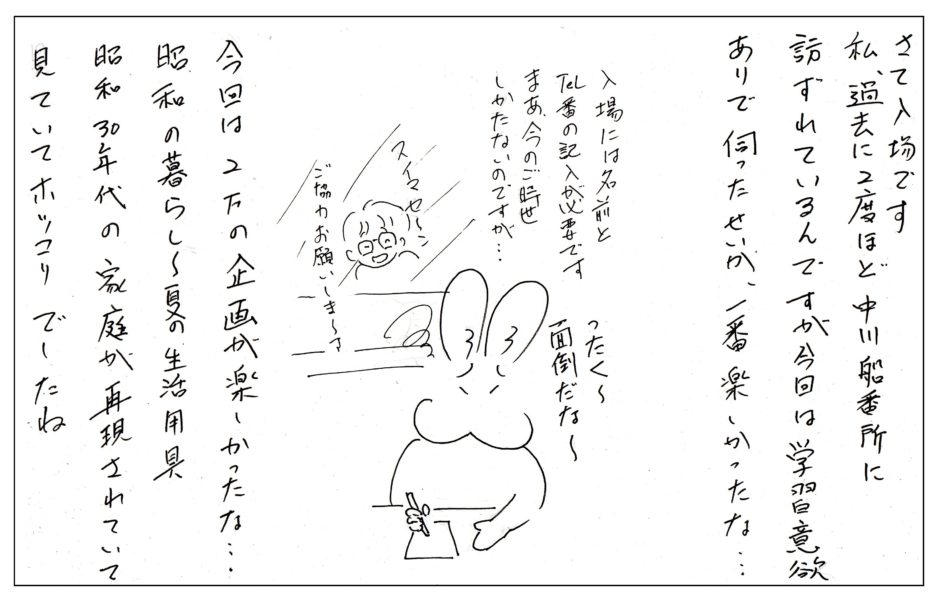 さて入場です
私、過去に2度ほど中川船番所に
訪ずれているんですが今回は学習意欲
ありで伺ったせいか、一番楽しかったな…
入場には名前と
TEL番の記入が必要です
まあ、今のご時世
しかたないのですが…
スイマセ〜ン
ご協力お願いしま〜す
ったく〜
面倒だな〜
今回は2Fの企画が楽しかったな…
昭和の暮らし〜夏の生活用具
昭和30年代の家庭が再現されていて
見ていてホッコリでしたね